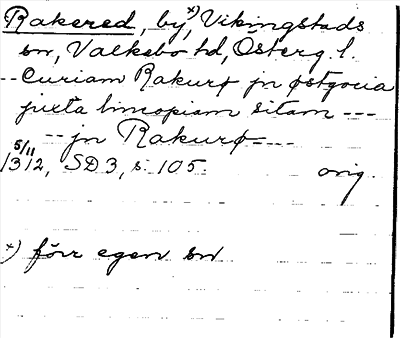 Rakered, by,x) Vikingstads
sn, Valkebo hd, Österg. l.
-- Curiam Rakurø jn østgocia
juxta lincopiam sitam ---
-- jn Rakurø ---
5/11
1312, SD 3, s. 105. orig.
x) förr egen sn